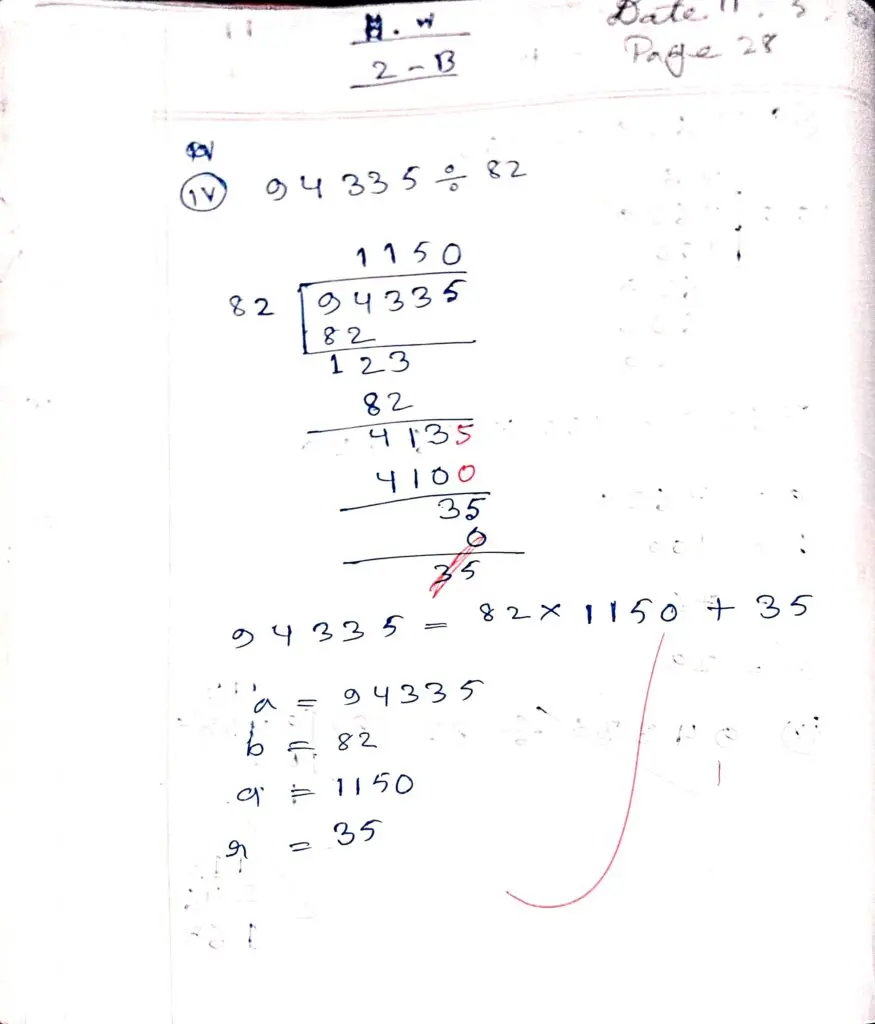 H.W
2-B
Date 11.
Page 28
iv 94335 ÷ 82
1150
82 94335
82
123
82
4135
4100
35
0
35
94335 = 82 × 1150 + 35
a = 94335
b = 82
q = 1150
r = 35